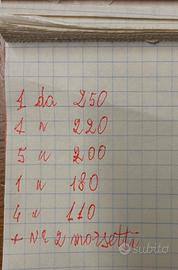 1 da 250
1 " 220
5 " 200
1 " 180
4 " 110
+ N° 2 morsetti
subito